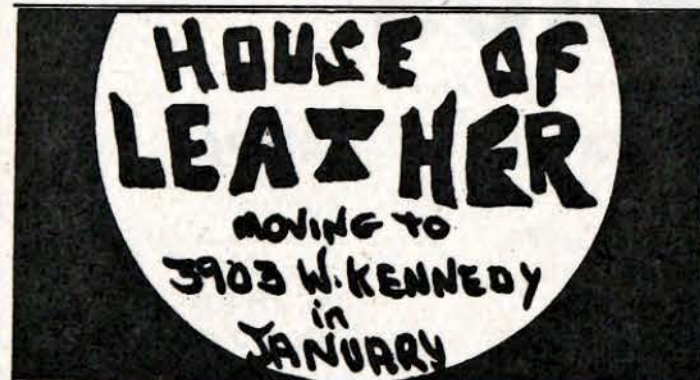 HOUSE OF
LEATHER
MOVING TO
3903 W. KENNEDY
in
JANUARY